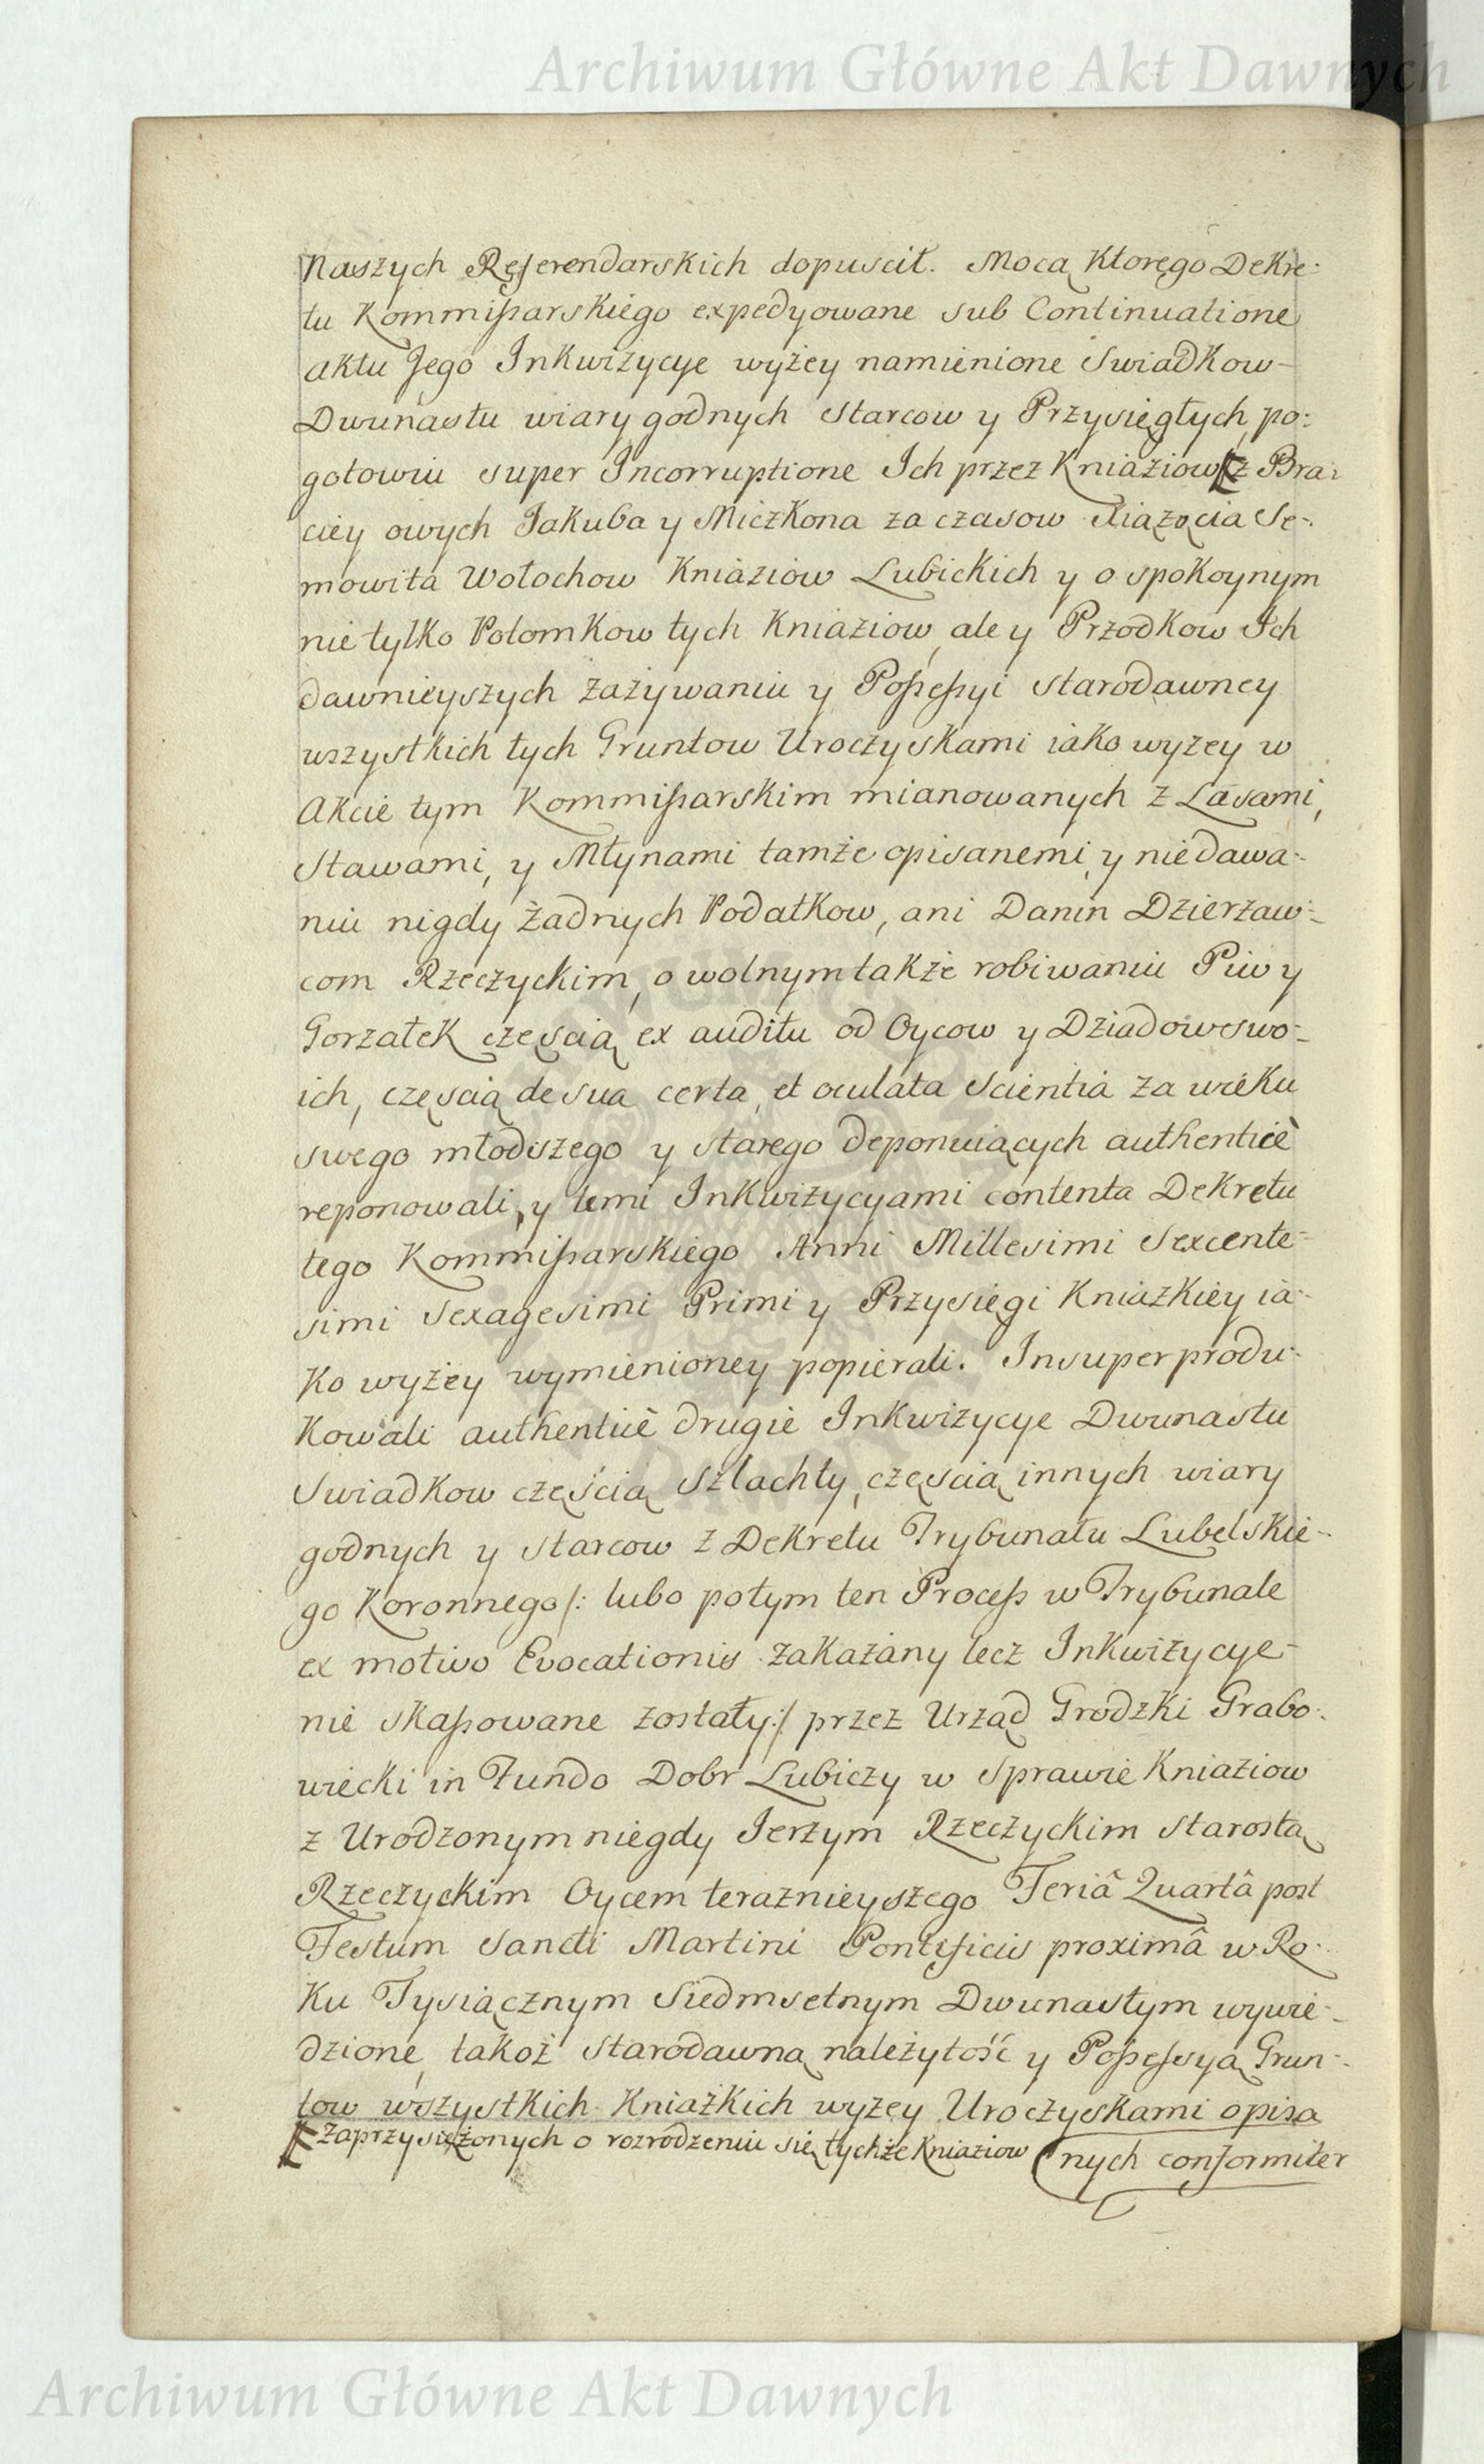 Archiwum Główne Akt Dawnych
Naszych Referendarskich dopuscił. Mocą Ktorego Dekre:
tu Kommissarskiego expedyowane sub Continuatione
aktu Jego Inkwizycye wyżey namienione Swiadkow
Dwunastu wiary godnych Starcow y Przysięgłych, po:
gotowiu super Incorruptione Ich przez Kniaziow z Bra:
ciey owych Jakuba y Miczkona za czasow Xiązęcia Se:
mowita Wołochow Kniaziow Lubickich y o spokoynym
nie tylko Potomkow tych Kniaziow, ale y Przodkow Ich
dawnieyszych zażywaniu y Possessyi starodawney
wszystkich tych Gruntow Uroczyskami iako wyzey w
Akcie tym Kommissarskim mianowanych z Lasami,
Stawami, y Młynami tamże opisanemi, y niedawa:
niu nigdy żadnych Podatkow, ani Danin Dzierzaw:
com Rzeczyckim, o wolnym także robiwaniu Piw y
Gorzałek częscią ex auditu od Oycow y Dziadow swo:
ich, częscią de sua certa, et oculata Scientia za wieku
swego młodszego y starego deponuiących authenticè
reponowali, y temi Inkwizycyami contenta Dekretu
tego Kommissarskiego Anni Millesimi Sexcente:
simi Sexagesimi Primi y Przysięgi Kniazkiey ia:
ko wyżey wymienioney popierali. Insuper produ:
kowali authenticè drugie Inkwizycye Dwunastu
Swiadkow częścią Szlachty, częscią innych wiary
godnych y starcow z Dekretu Trybunału Lubelskie:
go Koronnego /: lubo potym ten Process w Trybunale
ex motivo Evocationis zakazany lecz Inkwizycye
nie skassowane zostały :/ przez Urząd Grodzki Grabo:
wiecki in Fundo Dobr Lubiczy w sprawie Kniaziow
z Urodzonym niegdy Jerzym Rzeczyckim Starostą
Rzeczyckim Oycem teraznieyszego Feriâ Quartâ post
Festum Sancti Martini Pontificis proximâ w Ro:
ku Tysiącznym Siedmsetnym Dwunastym wywie:
dzione, takoż starodawną należytość y Possessyą Grun:
tow wszystkich Kniazkich wyzey Uroczyskami opisa
zaprzysiężonych o rozrodzeniu się tychże Kniaziow
nych conformiter
Archiwum Główne Akt Dawnych